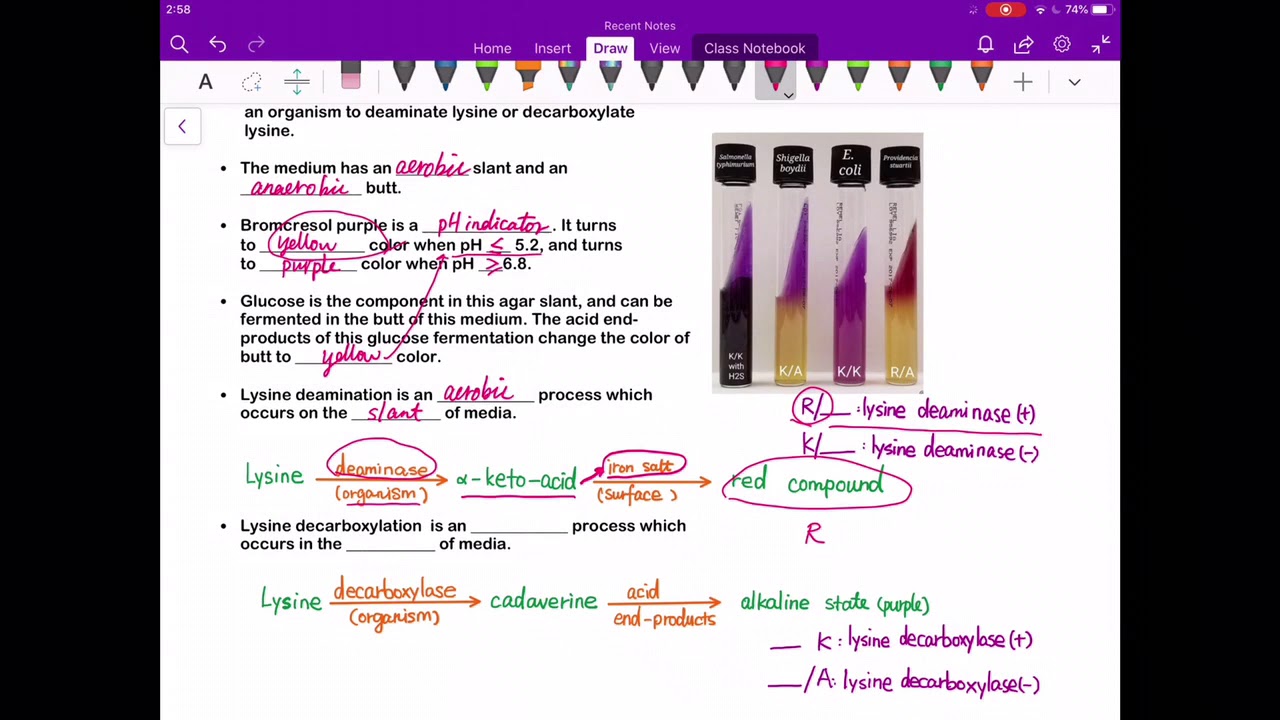 2:58
74%
Recent Notes
Home Insert Draw View Class Notebook
A
an organism to deaminate lysine or decarboxylate
lysine.
• The medium has an aerobic slant and an
anaerobic butt.
• Bromcresol purple is a pH indicator. It turns
to yellow color when pH ≤ 5.2, and turns
to purple color when pH ≥ 6.8.
• Glucose is the component in this agar slant, and can be
fermented in the butt of this medium. The acid end-
products of this glucose fermentation change the color of
butt to yellow color.
• Lysine deamination is an aerobic process which
occurs on the slant of media.
Salmonella typhimurium
Shigella boydii
E. coli
Providencia stuartii
K/K with H2S
K/A
K/K
R/A
R/__ : lysine deaminase (+)
K/__ : lysine deaminase (-)
Lysine deaminase (organism) α-keto-acid iron salt (surface) red compound
R
• Lysine decarboxylation is an __________ process which
occurs in the __________ of media.
Lysine decarboxylase (organism) cadaverine acid end-products alkaline state (purple)
__ K : lysine decarboxylase (+)
__/A : lysine decarboxylase (-)